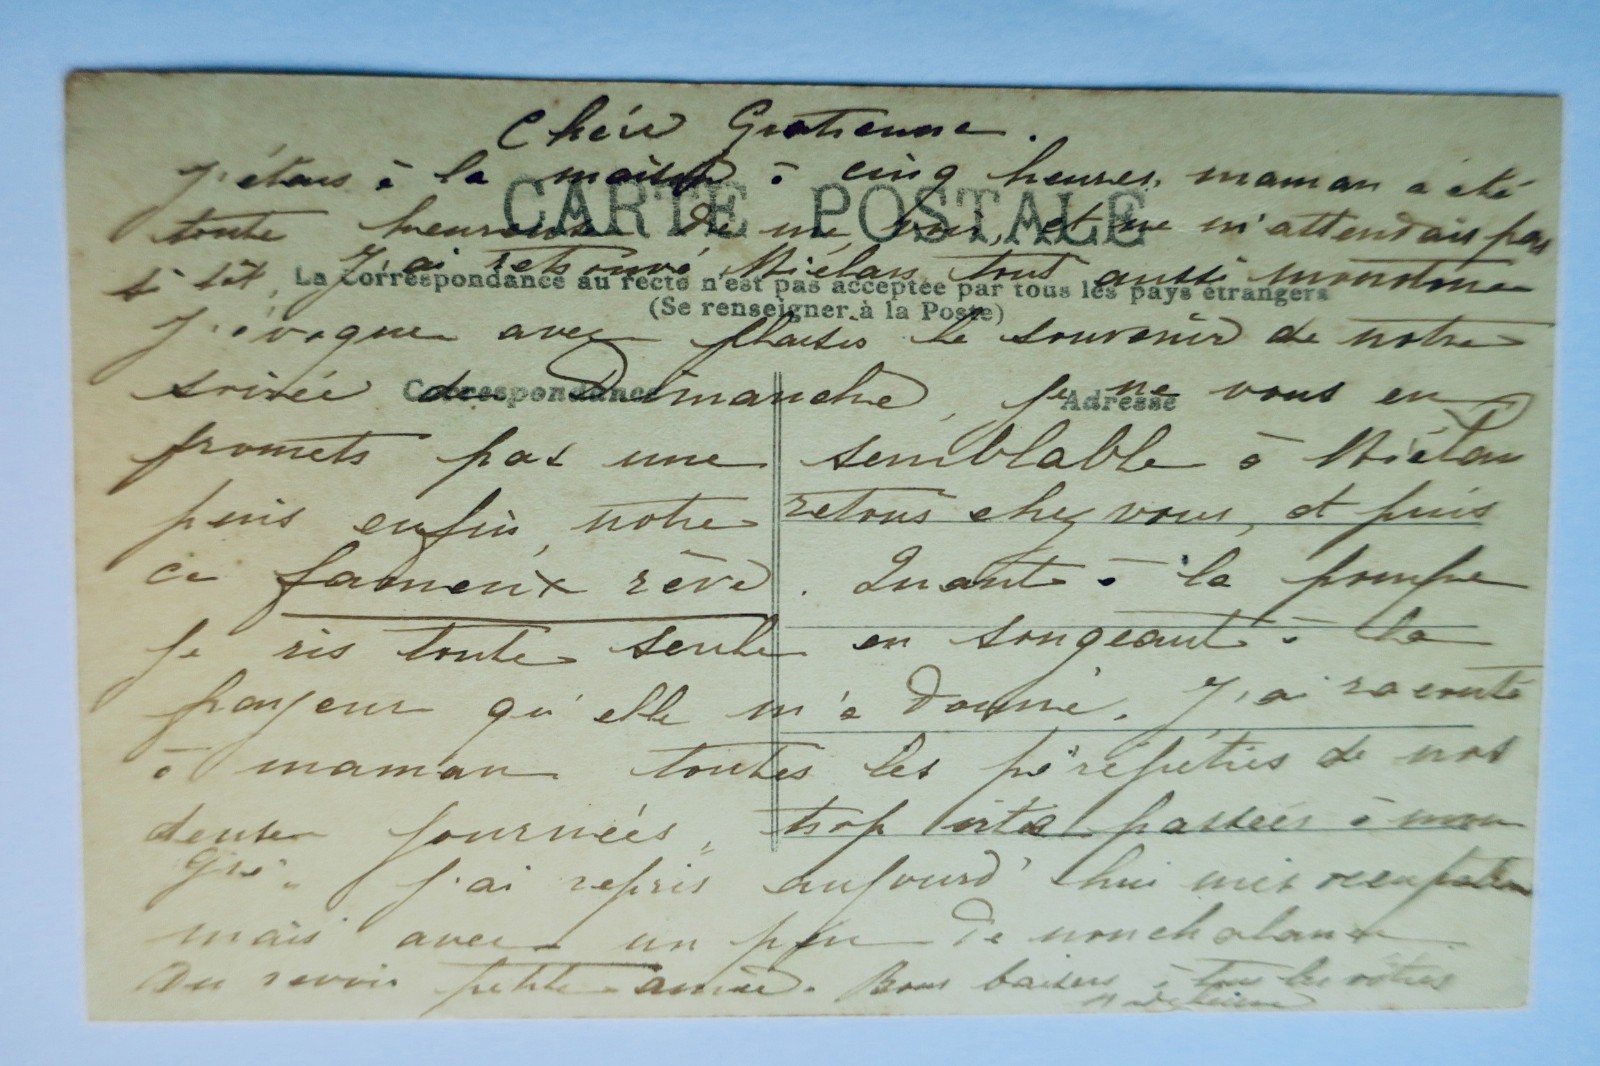 Chère Gratienne.
J'étais à la maison à cinq heures, maman a été
CARTE POSTALE
toute heureuse de me voir, et ne m'attendais pas
si tôt. J'ai retrouvé Miélan tout aussi monotone
La Correspondance au recto n'est pas acceptée par tous les pays étrangers
(Se renseigner à la Poste)
J'évoque avec plaisir le souvenir de notre
Correspondance
Adresse
soirée de Dimanche, je ne vous en
promets pas une semblable à Miélan
puis enfin, notre retour chez vous, et puis
ce fameux rêve. Quant à la pompe
je ris toute seule en songeant à la
frayeur qu'elle m'a donné. J'ai raconté
à maman toutes les péripéties de nos
deux journées, trop vites passées à mon
gré. J'ai repris aujourd'hui mes occupations
mais avec un peu de nonchalance.
Au revoir petite amie. Bons baisers à tous les vôtres
Madeleine